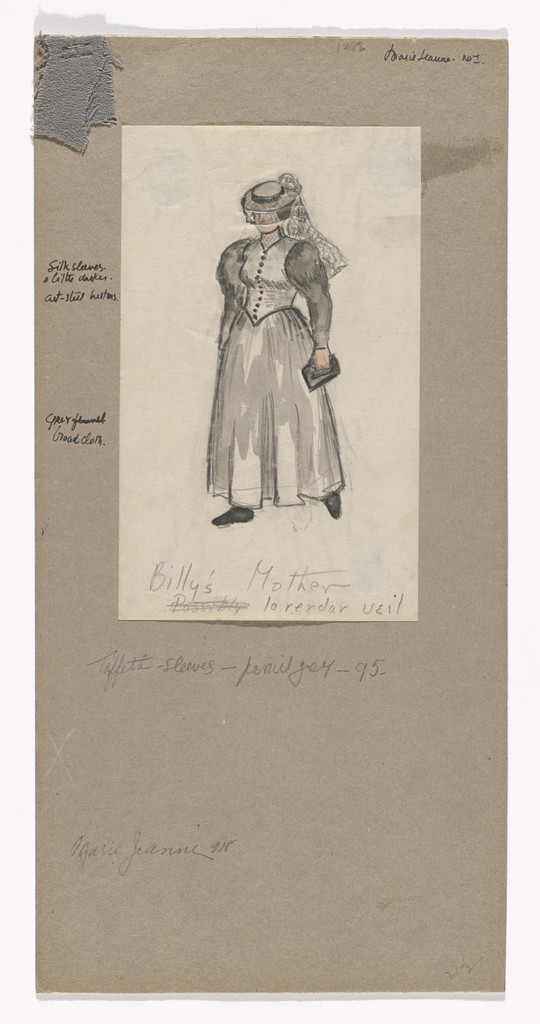 Marie Jeanne. No 1.
Silk sleeves.
a little darker.
cut-steel buttons.
Grey flannel
broadcloth.
Billy's Mother
Possibly laverdar veil
Taffeta - sleeves - pencil grey - 95.
X
Marie Jeanne